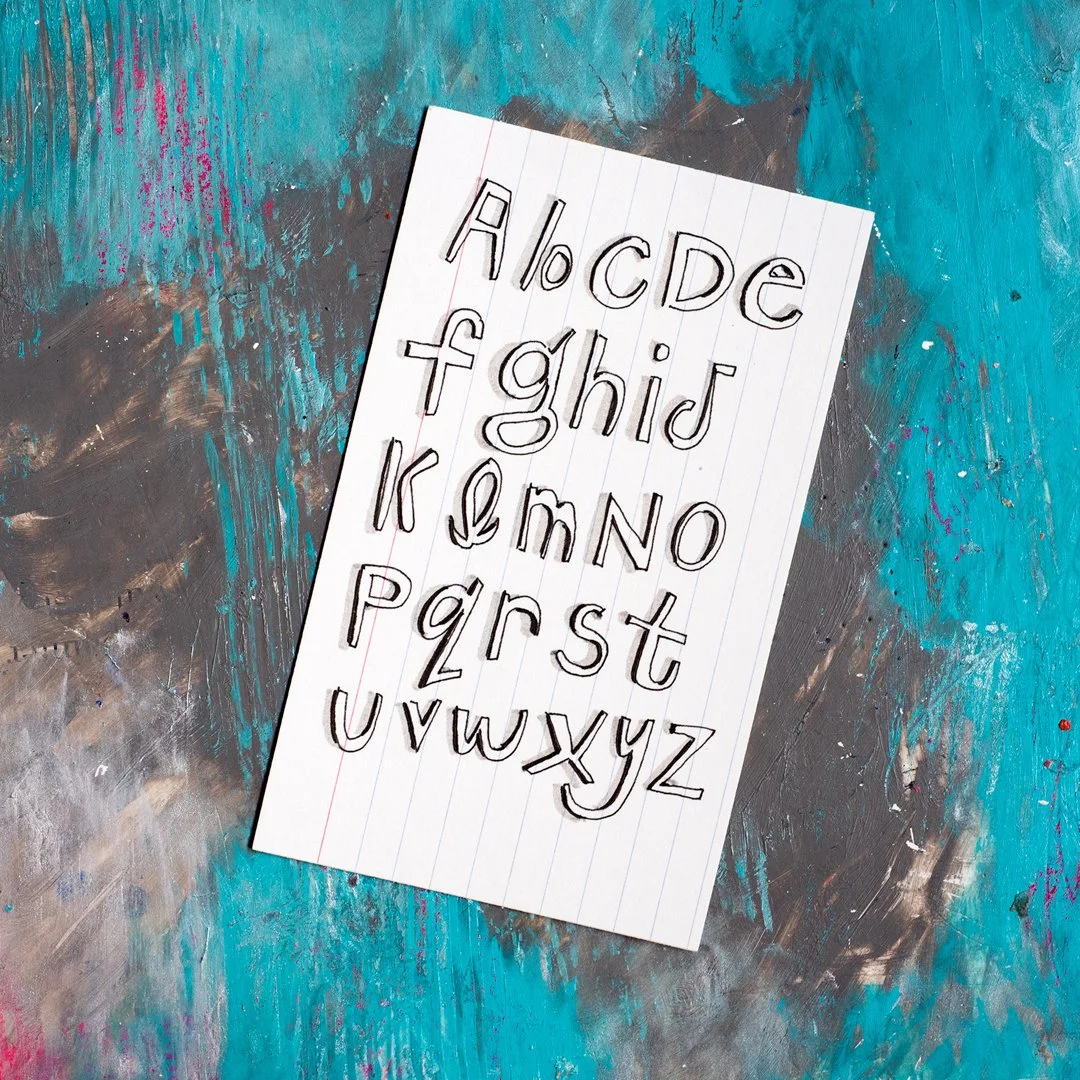 AbCDe
fghij
Klmno
Pqrst
uvwxyz